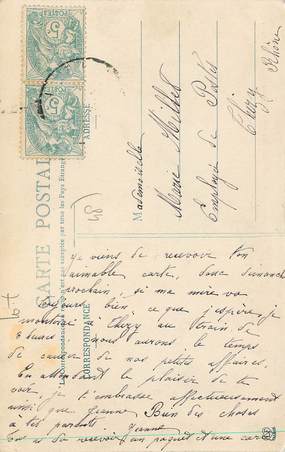 CARTE POSTALE
CORRESPONDANCE
ADRESSE
POSTES
5c
POSTES
5c
Mademoiselle
Marie
Employée de Postes
Thizy
Rhône
48
Je viens de recevoir ton
aimable carte, donc dimanche
prochain, si ma mère va
toujours bien ce que j'espère, je
monterai à Thizy au train de
2 heures nous aurons le temps
de causer de nos petites affaires.
En attendant le plaisir de te
voir, je t'embrasse affectueusement
ainsi que Jeanne Bien des choses
à tes parents. Jeanne
de recevoir un paquet et une carte